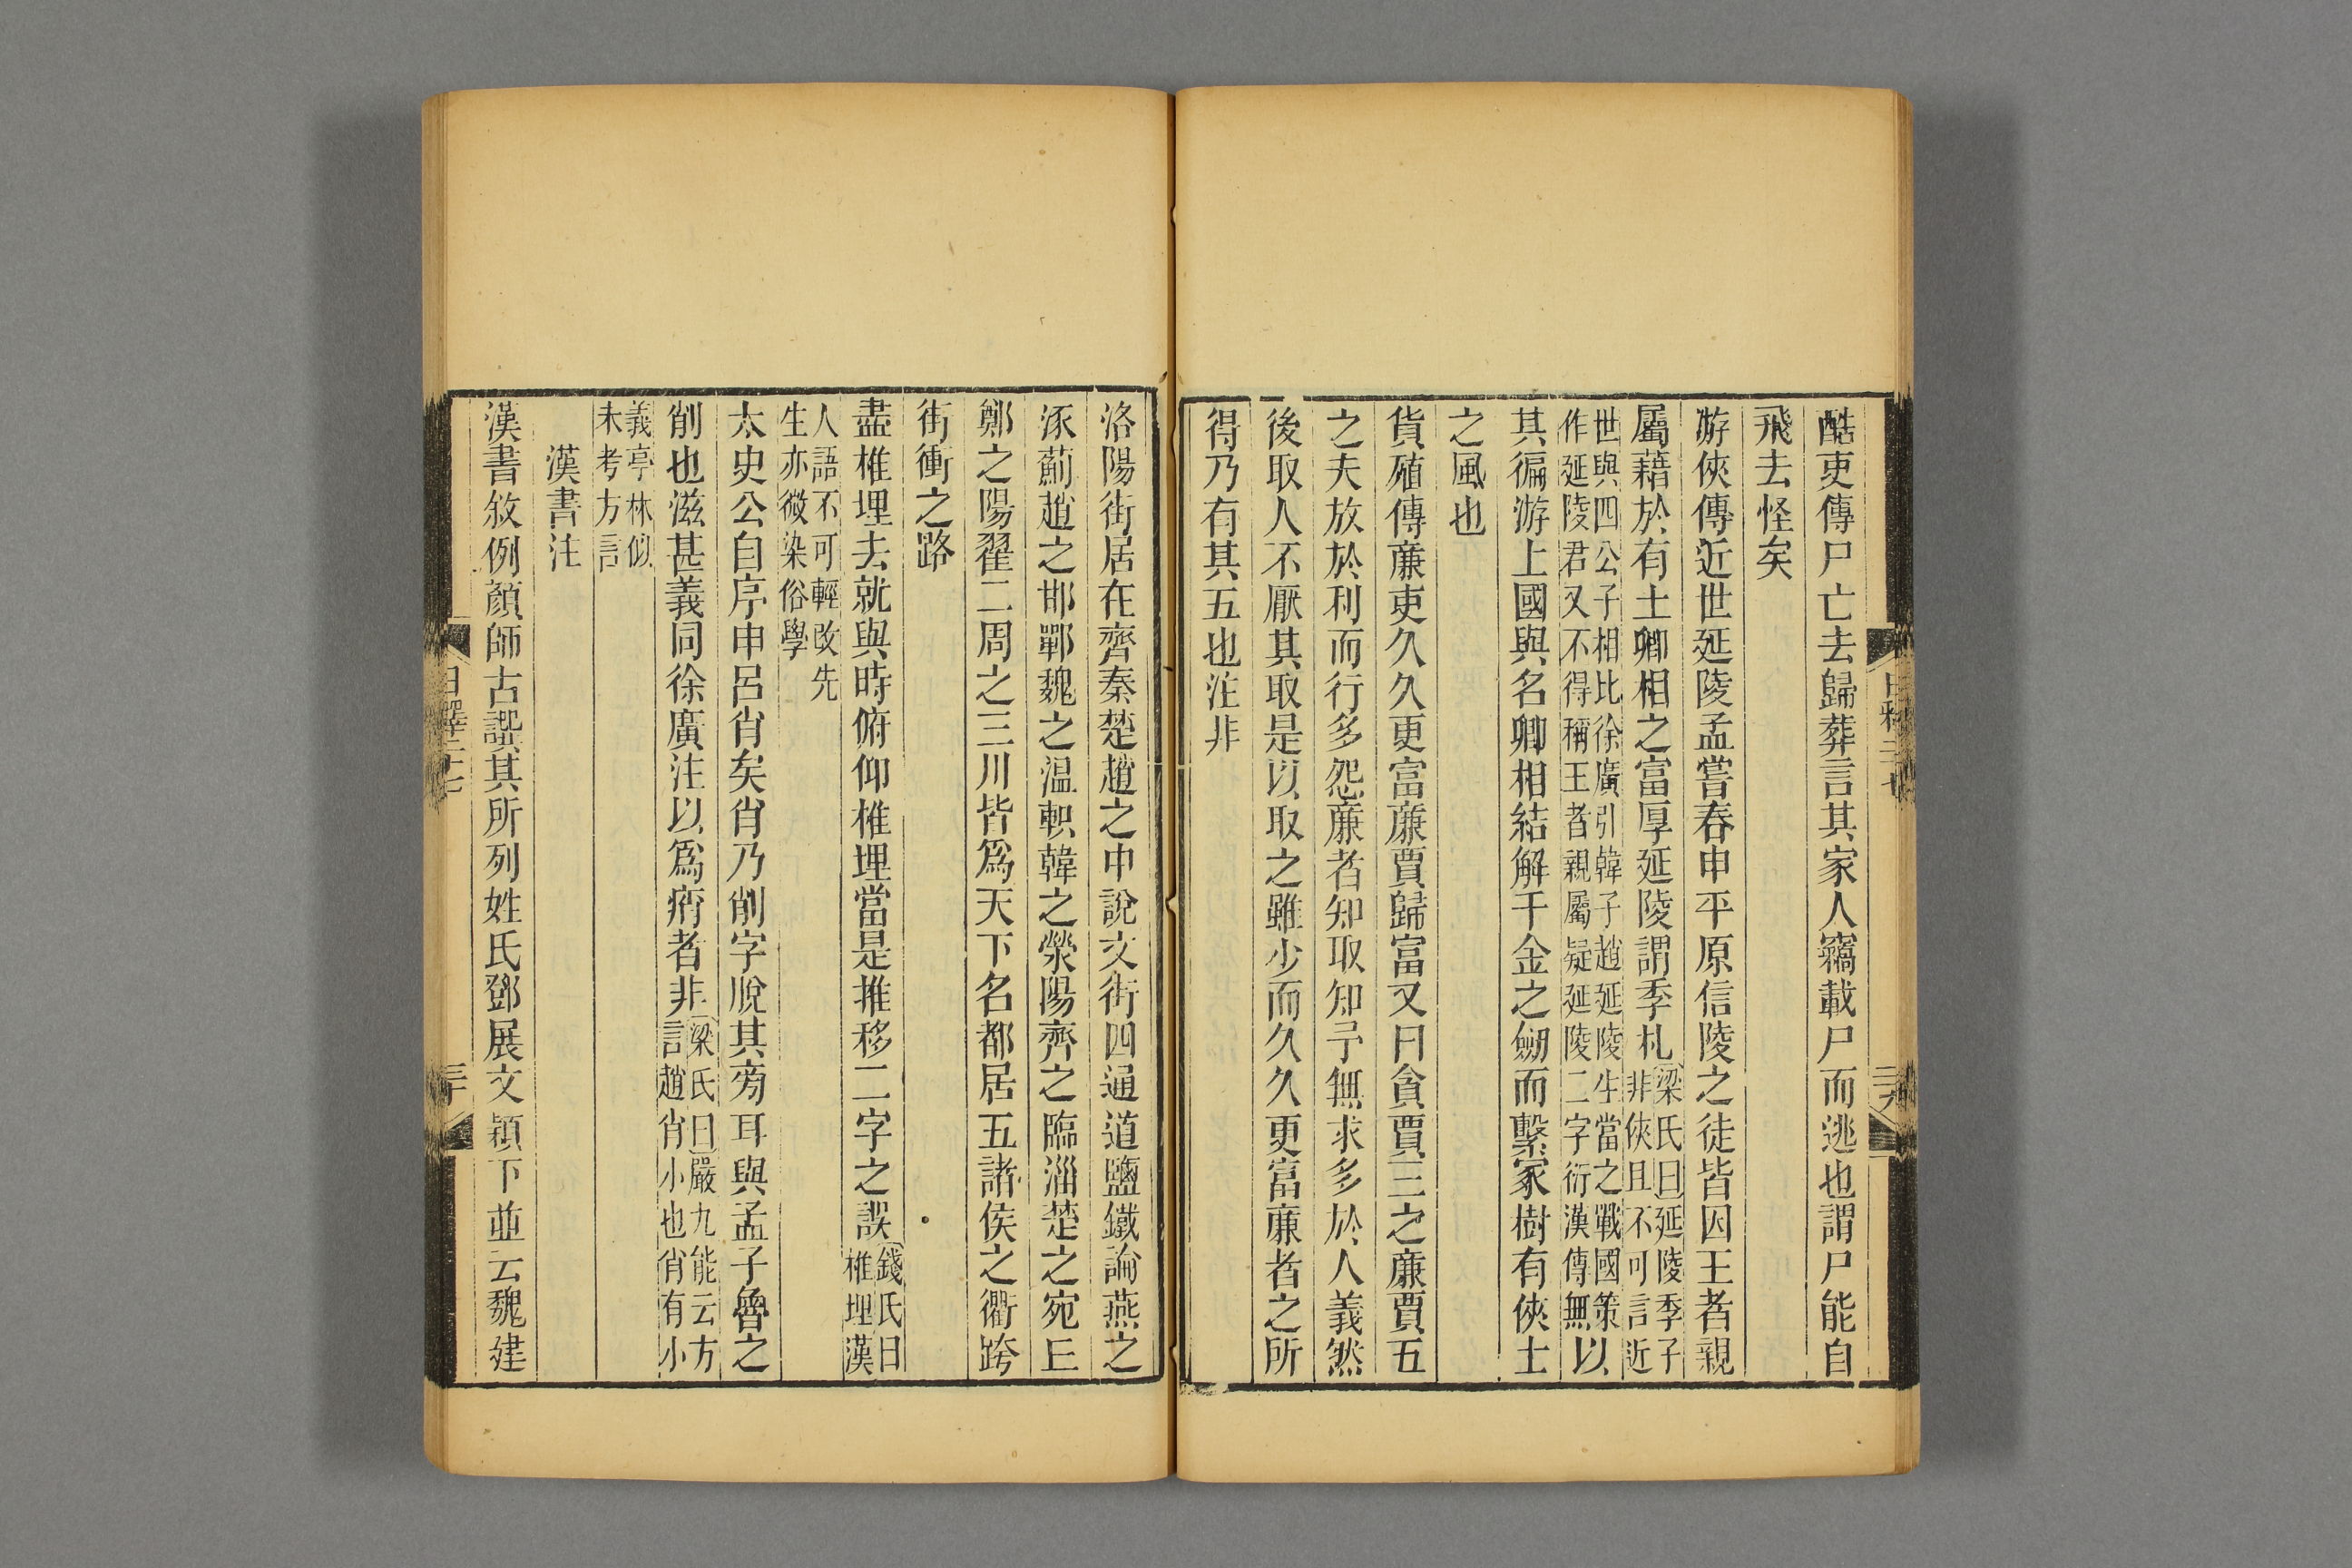 酷吏傳尸亡去歸葬言其家人竊載尸而逃也謂尸能自
飛去怪矣
游俠傳近世延陵孟嘗春申平原信陵之徒皆因王者親
屬藉於有土卿相之富厚延陵謂季札梁氏曰延陵季子非俠且不可言近
世與四公子相比徐廣引韓子趙延陵生當之戰國策作延陵君又不得稱王者親屬疑延陵二字衍漢傳無以
其徧游上國與名卿相結解千金之劒而繫冢樹有俠士
之風也
貨殖傳廉吏久久更富廉賈歸富又曰貪賈三之廉賈五
之夫放於利而行多怨廉者知取知予無求多於人義然
後取人不厭其取是以取之雖少而久久更富廉者之所
得乃有其五也注非
洛陽街居在齊秦楚趙之中說文街四通道鹽鐵論燕之
涿薊趙之邯鄲魏之温軹韓之滎陽齊之臨淄楚之宛𠀉
鄭之陽翟二周之三川皆爲天下名都居五諸侯之衢跨
街衝之路
盡椎埋去就與時俯仰椎埋當是推移二字之誤錢氏曰椎埋漢
人語不可輕改先生亦微染俗學
太史公自序申呂肖矣肖乃削字脫其旁耳與孟子魯之
削也滋甚義同徐廣注以爲痟者非梁氏曰嚴九能云方言趙肖小也肖有小
義亭林似未考方言
漢書注
漢書敘例顏師古譔其所列姓氏鄧展文穎下並云魏建